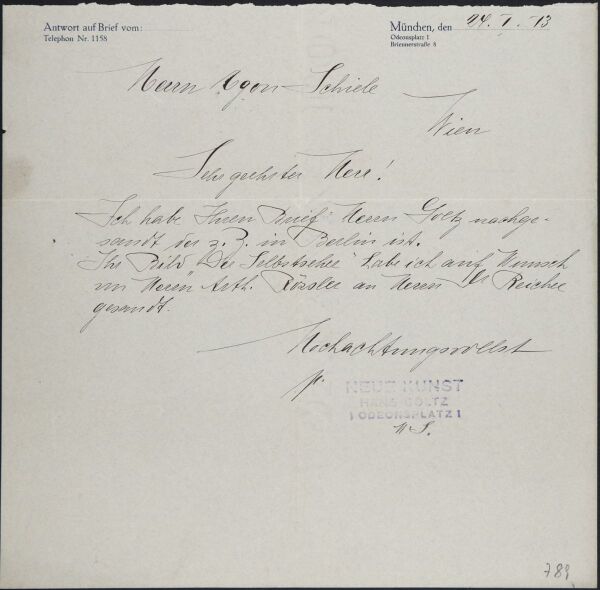 Antwort auf Brief vom:
Telephon Nr. 1158
München, den 24. I. 13
Odeonsplatz 1
Briennerstraße 8
Herrn Egon Schiele
Wien
Sehr geehrter Herr!
Ich habe Ihren Brief Herrn Goltz nachge-
sandt der z. Z. in Berlin ist.
Ihr Bild „Der Selbstseher" habe ich auf Wunsch
von Herrn Arth. Rössler an Herrn Dr Reichel
gesandt.
Hochachtungsvollst
p.
NEUE KUNST
HANS GOLTZ
1 ODEONSPLATZ 1
789